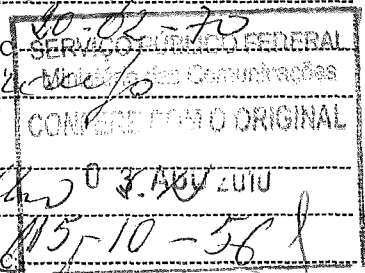 20-02-70
SERVIÇO PÚBLICO FEDERAL
Ministério das Comunicações
CONFERE COM O ORIGINAL
0 3. AGO 2010
15-10-56